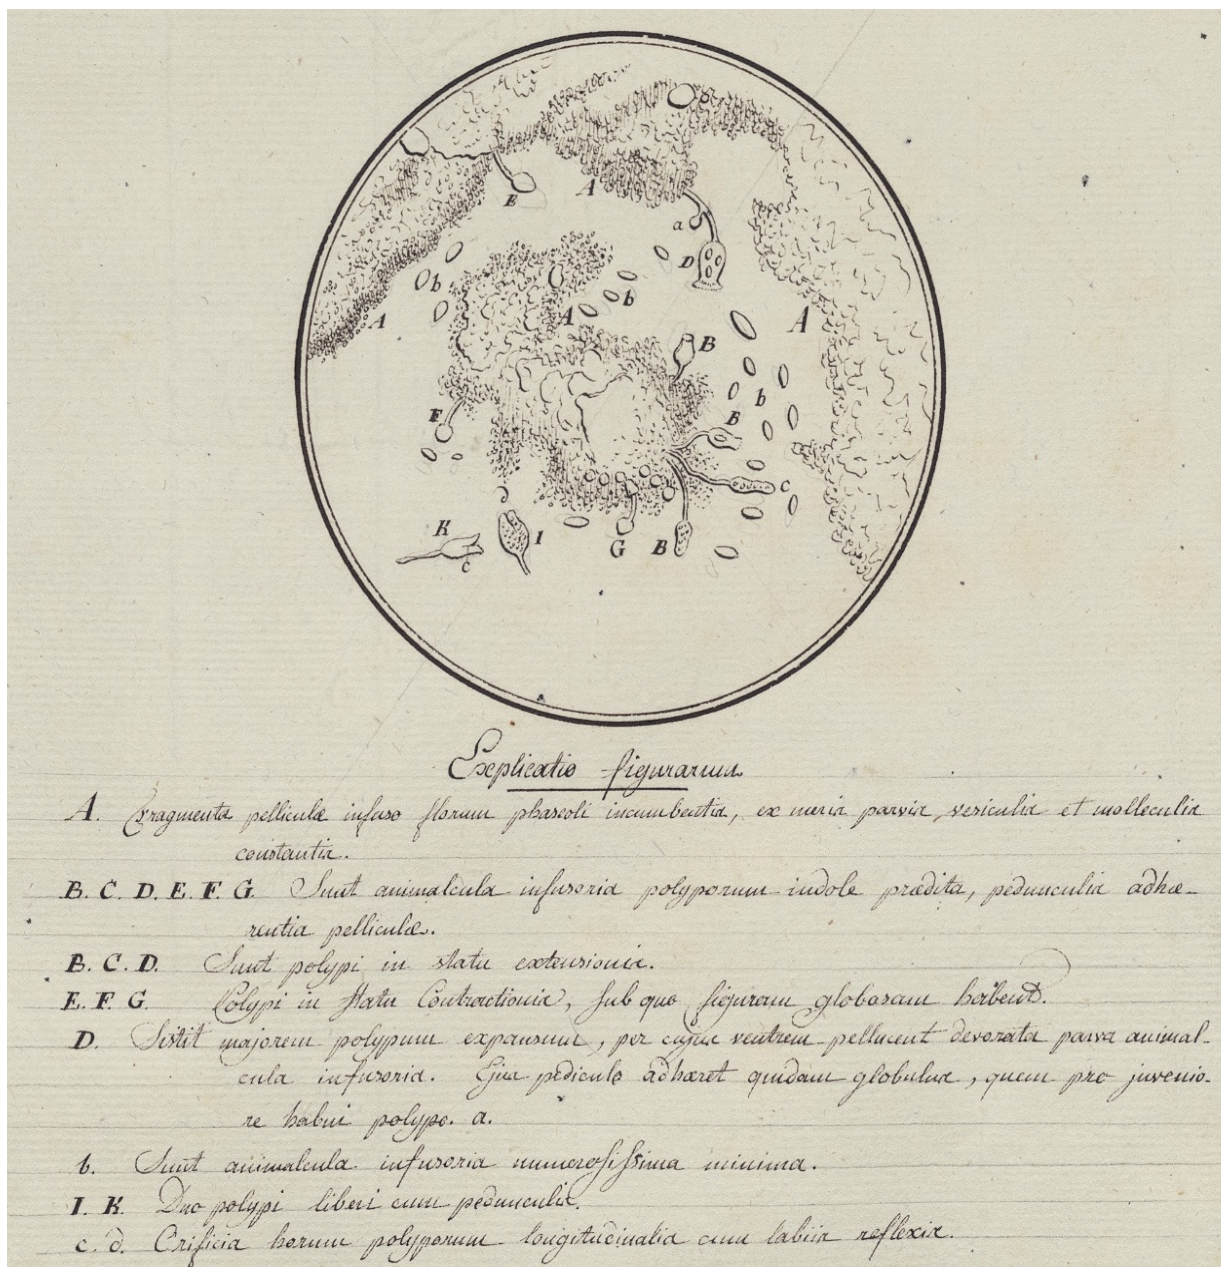 E
A
a
D
b
b
A
A
A
B
F
B
b
c
K
I
G
B
c
d
Explicatio figurarum
A. Fragmenta pelliculæ infuso florum phaseoli incumbentia, ex meris parvis, vesiculis et molleculis
constantia.
B. C. D. E. F. G. Sunt animalcula infusoria polyporum indole prædita, pedunculis adhæ-
rentia pelliculæ.
B. C. D. Sunt polypi in statu extensionis.
E. F. G. Polypi in statu Contractionis, sub quo figuram globosam habent.
D. Sistit majorem polypum expansum, per cujus ventrem pellucent devorata parva animal-
cula infusoria. Ejus pediculo adhæret quidam globulus, quem pro junio-
re habui polypo. a.
b. Sunt animalcula infusoria numerosissima minima.
I. K. Duo polypi liberi cum pedunculis.
c. d. Orificia horum polyporum longitudinalia cum labiis reflexis.